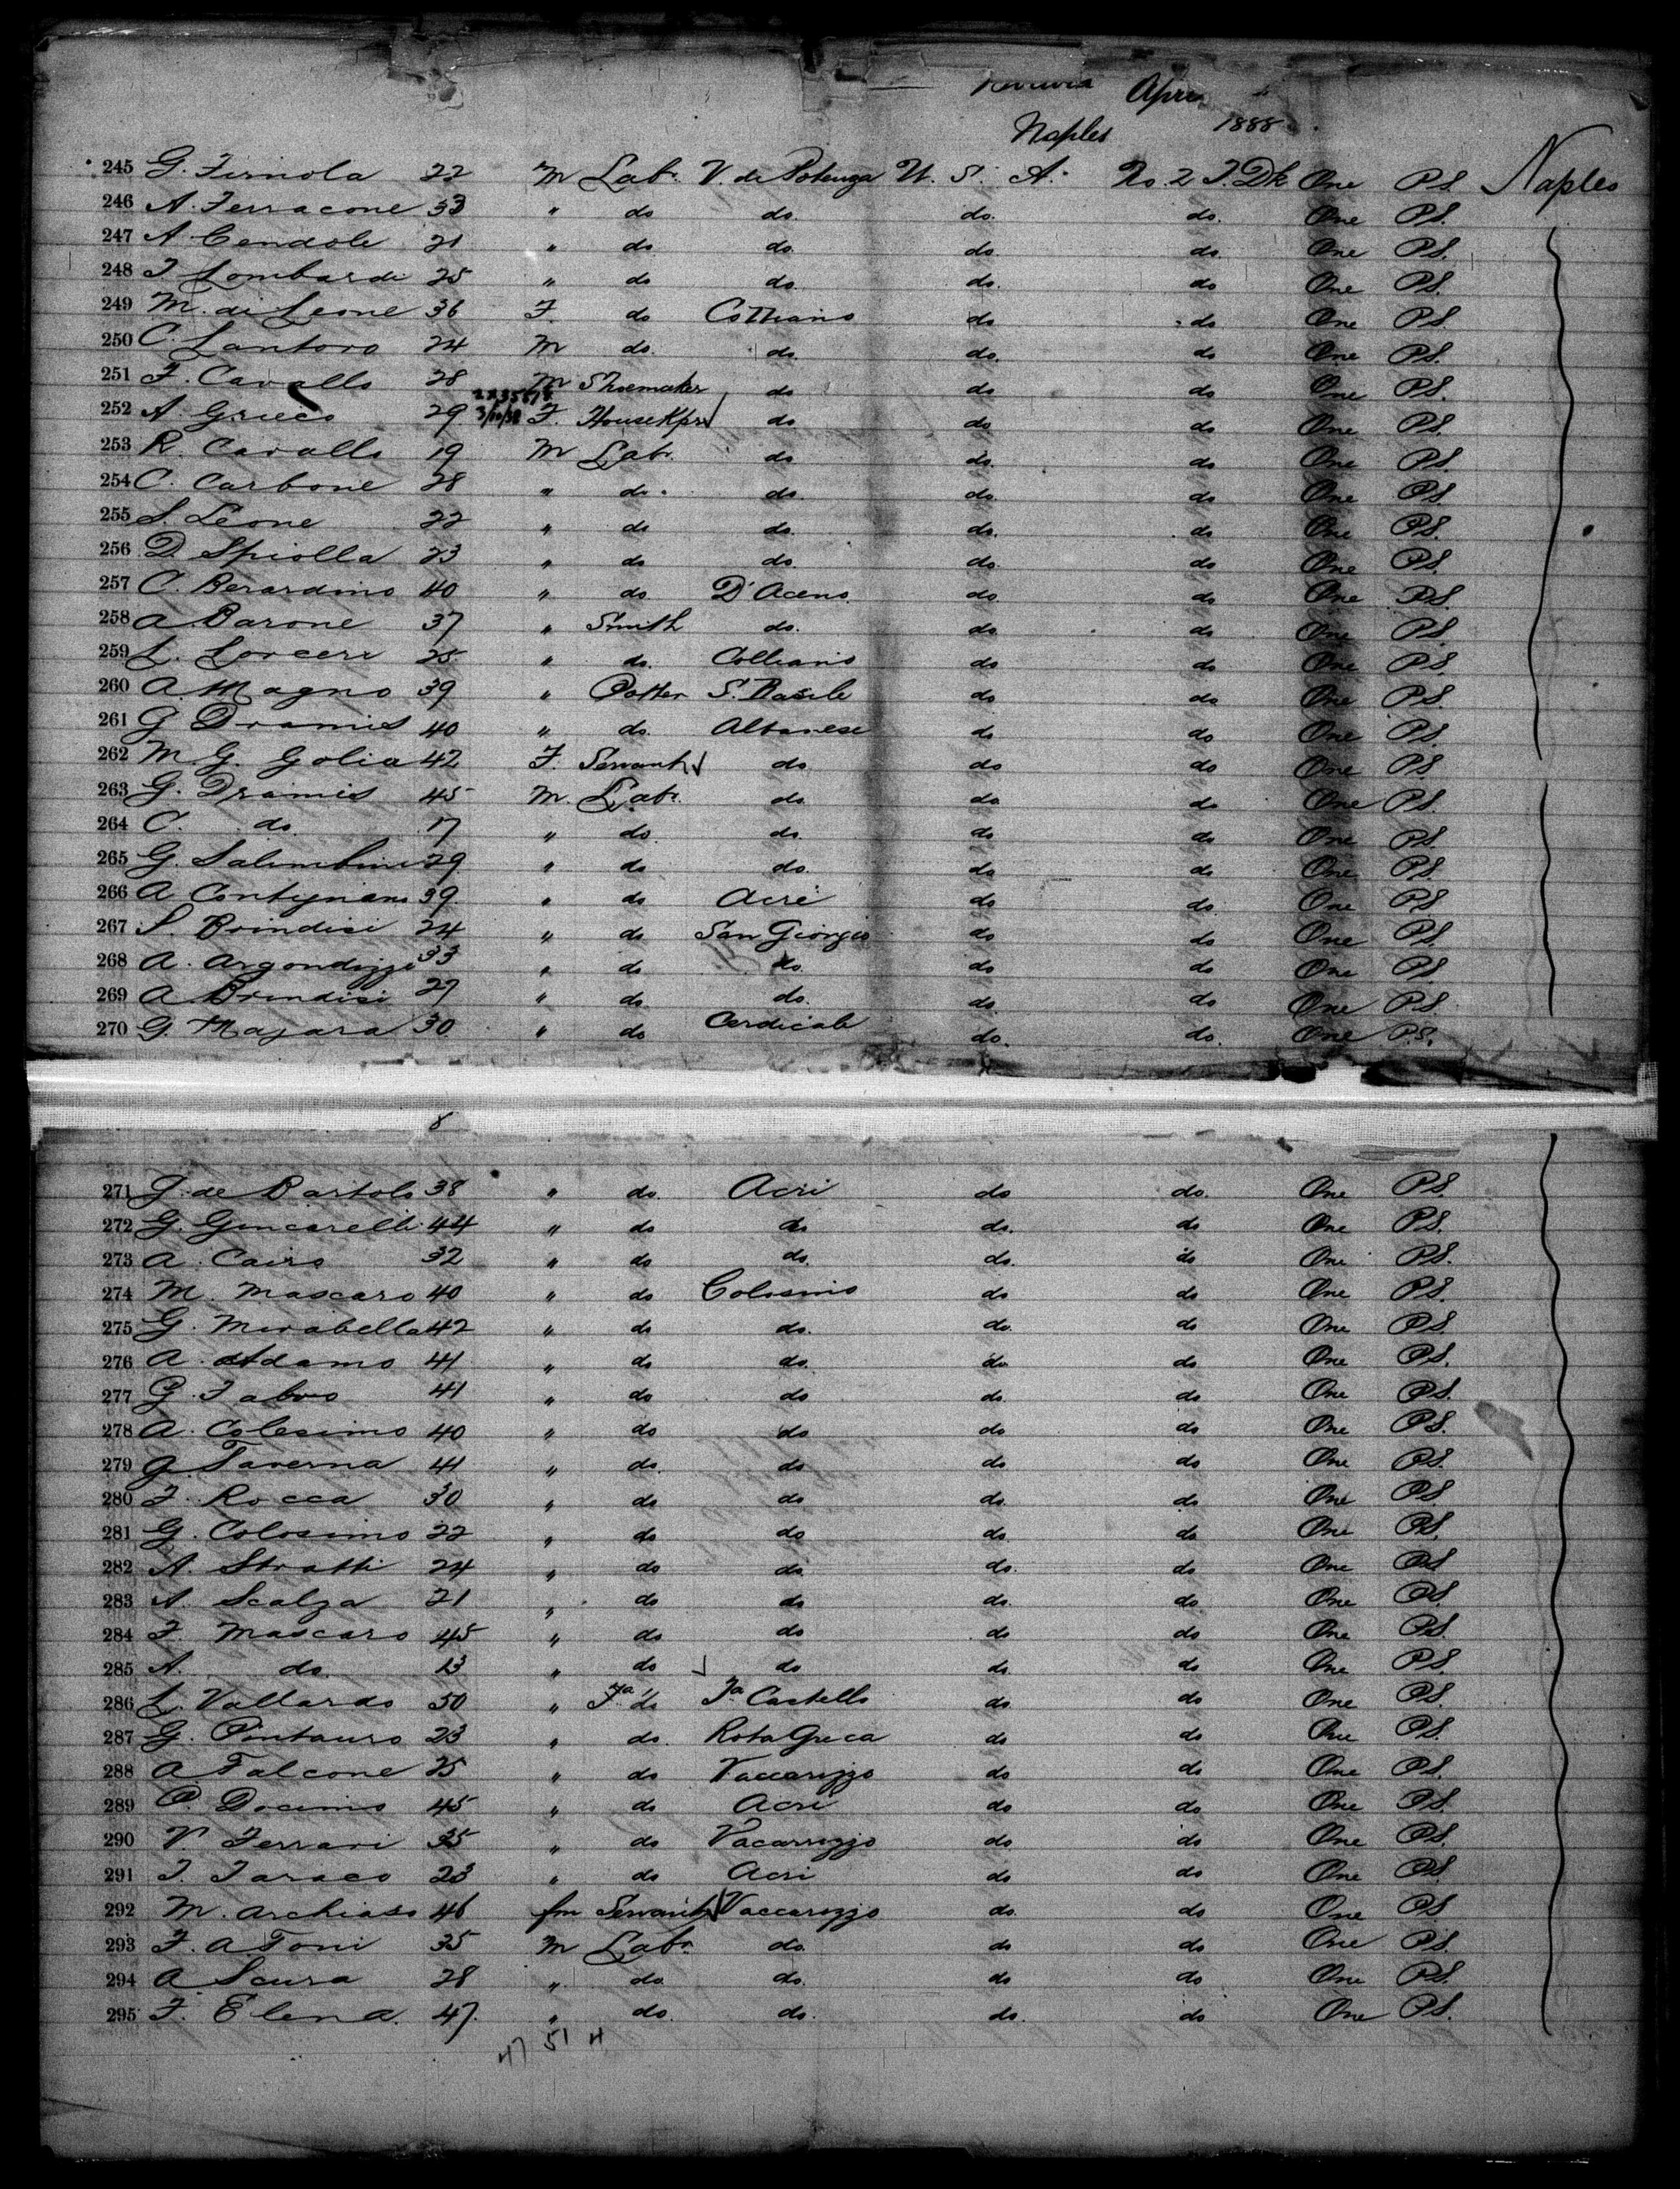 Apri
Naples 1888
245 G. Firnola 22 M Labr. V. di Potenza U. S. A. No. 2 T. Dk One P.S. Naples
246 A. Ferracone 33 " do do. do. do. One P.S.
247 A Cendole 21 " do do do. do. One P.S.
248 T Lombardi 25 " do do. do. do One P.S.
249 M. di Leone 36 F. do Colliano do do One P.S.
250 C. Santoro 24 M do. do. do. do One P.S.
251 F. Cavallo 28 M Shoemaker do do do One P.S.
252 A Grieco 29 F. HouseKpr do do do One P.S.
253 R. Cavallo 19 M Labr. do do. do One P.S.
254 C. Carbone 28 " do. do. do. do One P.S.
255 S. Leone 22 " do do. do. do One P.S.
256 D. Spiolla 23 " do do do. do One P.S.
257 C. Berardino 40 " do. D'Aceno. do. do One P.S.
258 A Barone 37 " Smith do. do do One P.S.
259 L. Lorceri 25 " do. Colliano do do One P.S.
260 A. Magno 39 " Potter S. Basile do do One P.S.
261 G Dramis 40 " do. Albanese do do One P.S.
262 M. G. Golia 42 F. Servant do do do One P.S.
263 G. Dramis 45 M. Labr. do. do do One P.S.
264 C. do. 17 " do do. do do One P.S.
265 G. Salimbini 29 " do do. do do One P.S.
266 A Contignano 39 " do Acri do do. One P.S.
267 S. Brindisi 24 " do San Giorgio do do One P.S.
268 A. Argondizzi 33 " do do do do One P.S.
269 A Brindisi 27 " do do. do. do One P.S.
270 G. Majara 30 " do Cerdicale do. do. One P.S.
8
271 G. de Bartolo 38 " do. Acri do do. One P.S.
272 G. Gencarelli 44 " do do do. do One P.S.
273 A. Cairo 32 " do do. do. do One P.S.
274 M. Mascaro 40 " do Colosimo do do One P.S.
275 G. Mirabella 42 " do do. do. do One P.S.
276 A. Adamo 41 " do do. do do One P.S.
277 G. Fabro 41 " do do do. do One P.S.
278 A. Colesimo 40 " do do do do One P.S.
279 G. Taverna 41 " do. do do do One P.S.
280 F. Rocca 30 " do do do. do One P.S.
281 G. Colosimo 22 " do do do. do One P.S.
282 A. Stratti 24 " do do. do. do One P.S.
283 A. Scalza 21 " do do do. do One P.S.
284 F. Mascaro 45 " do do do do One P.S.
285 A. do. 13 " do do do. do One P.S.
286 L. Vallardo 50 " do Castello do. do One P.S.
287 G. Pintauro 23 " do. Rota Greca do do One P.S.
288 A. Falcone 25 " do Vaccarizzo do do One P.S.
289 P. Docimo 45 " do Acri do do One P.S.
290 V. Ferrari 35 " do Vacarrizzo do do One P.S.
291 T. Taraco 23 " do Acri do do One P.S.
292 M. Archiaso 46 fm Servant Vaccarizzo do. do One P.S.
293 F. A. Toni 35 M Labr. do. do do One P.S.
294 A Scura 28 " do. do. do do One P.S.
295 F. Elena. 47. " do. do. do. do One P.S.
47 51 H